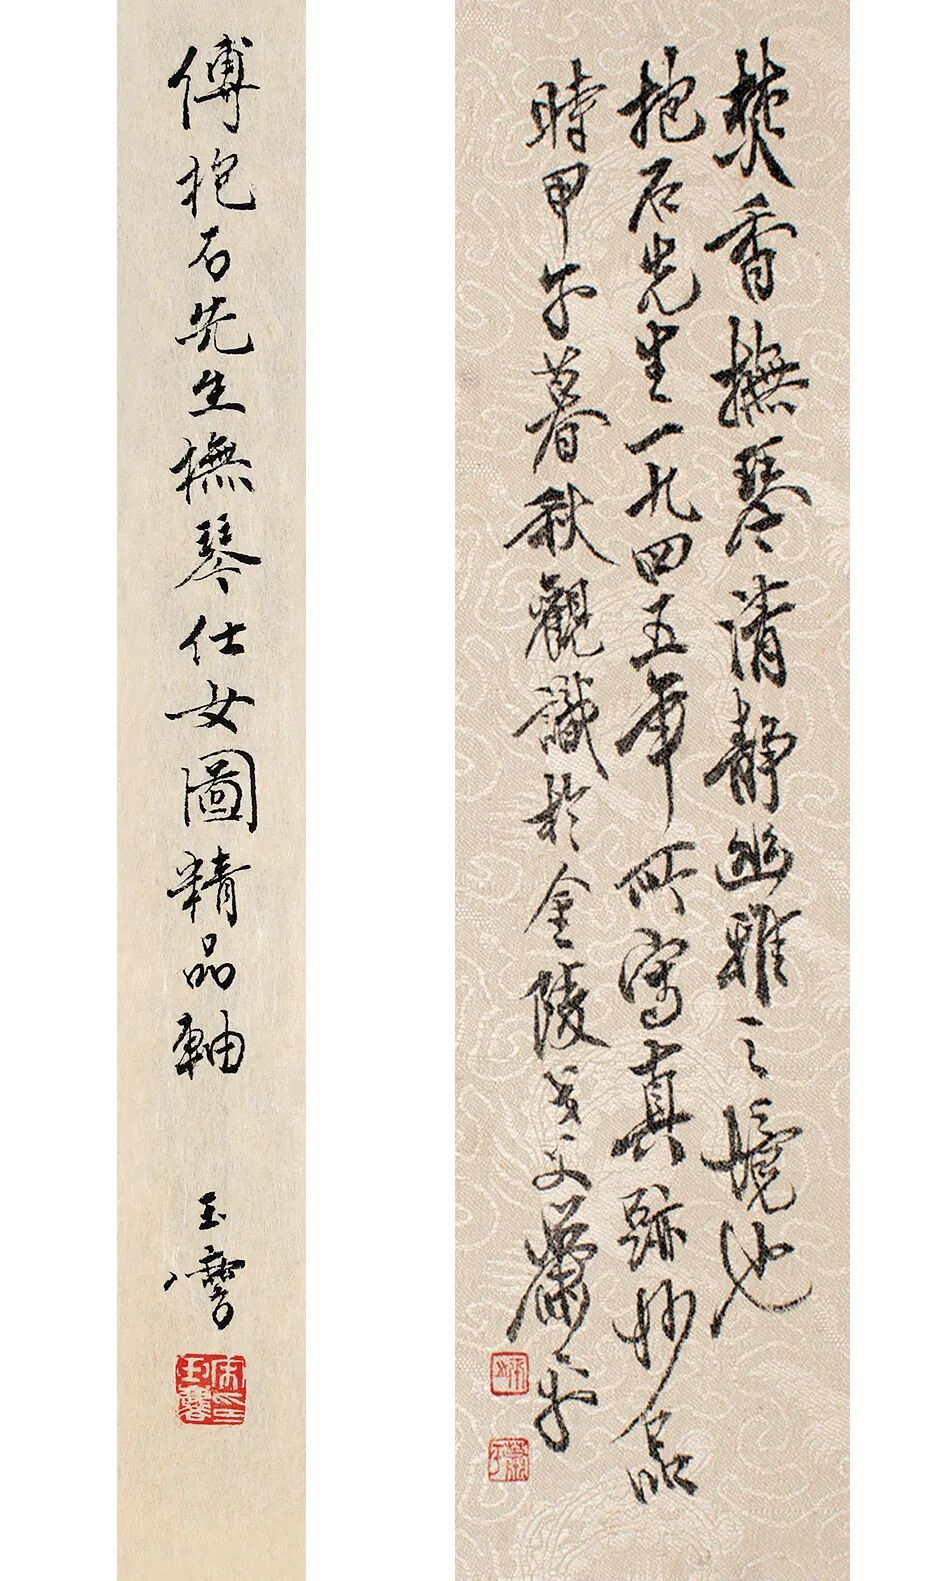 焚香撫琴清靜幽雅之境也
抱石先生一九四五年所寫真跡妙品
時甲午暮秋觀識於金陵戈父蕭平
蕭平
傅抱石先生撫琴仕女圖精品軸
玉麐
宋玉麐印